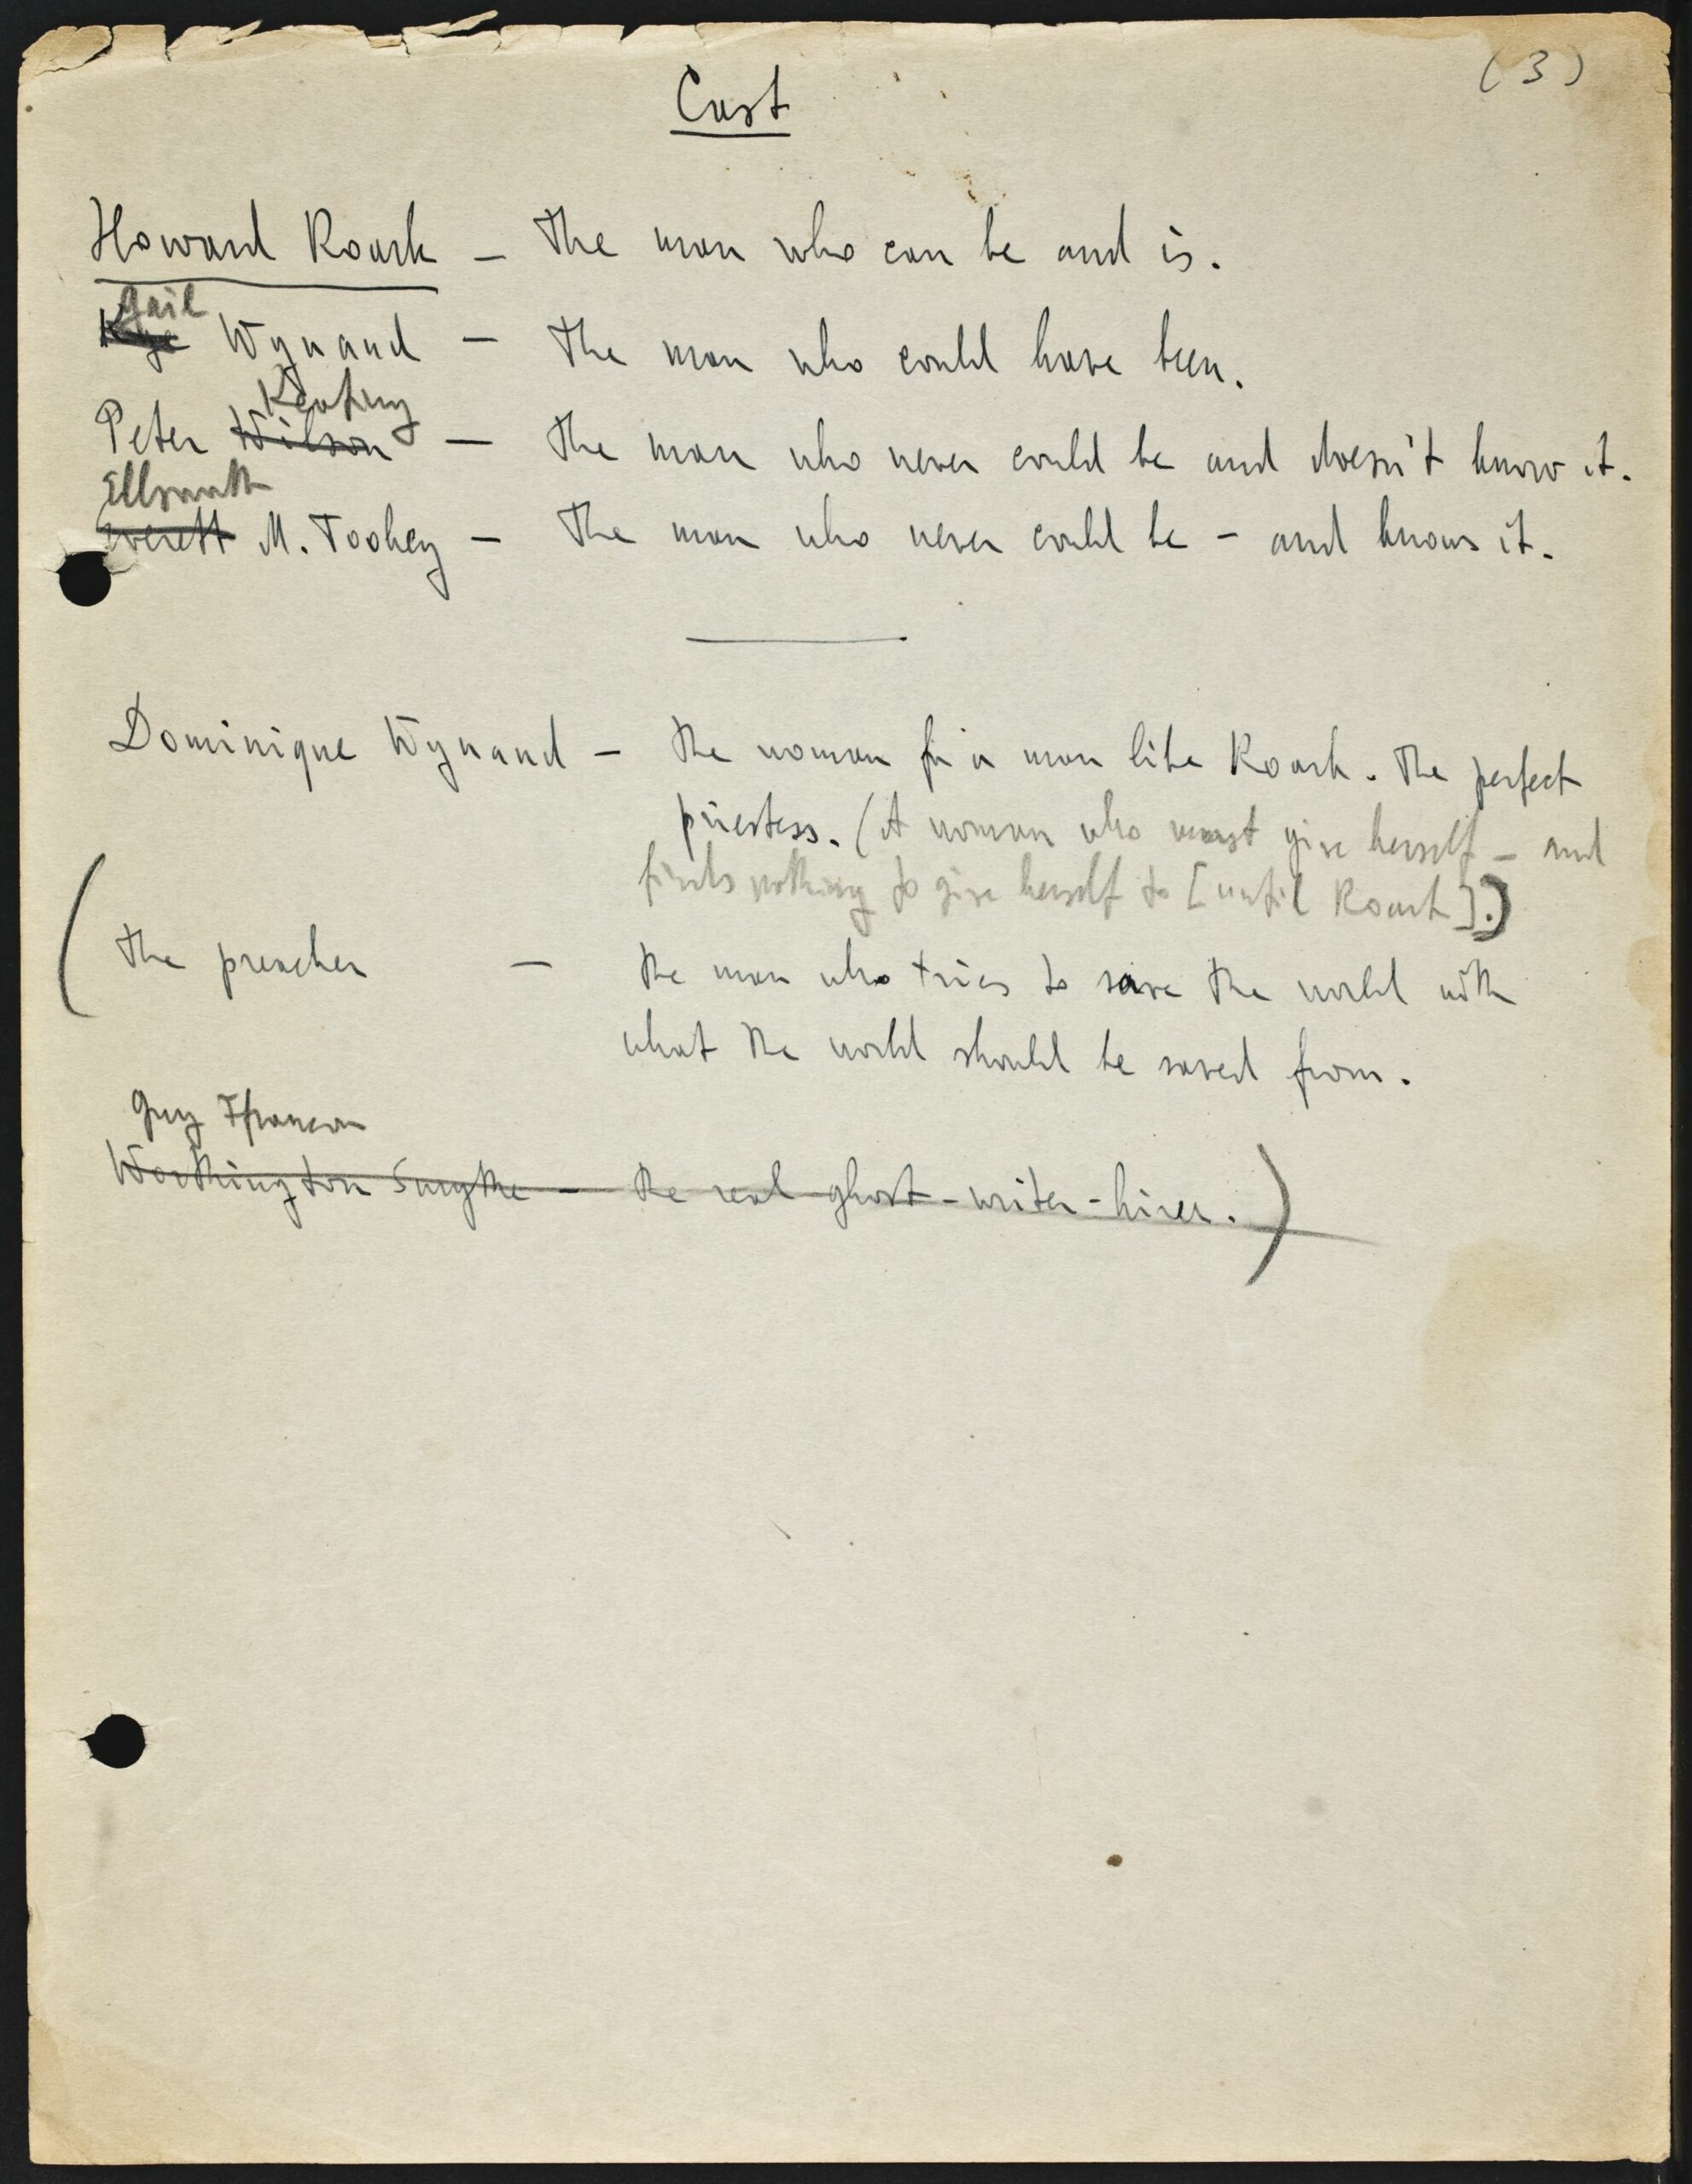 (3)
Cast
Howard Roark — The man who can be and is.
Gail
Wynand — The man who could have been.
Keating
Peter Wilson — The man who never could be and doesn't know it.
Ellsworth
Everett M. Toohey — The man who never could be — and knows it.
Dominique Wynand — The woman for a man like Roark. The perfect
priestess. (A woman who must give herself — and
finds nothing to give herself to [until Roark].)
(The preacher — The man who tries to save the world with
what the world should be saved from.
Guy Francon
Worthington Smythe — The real ghost-writer-hirer.)